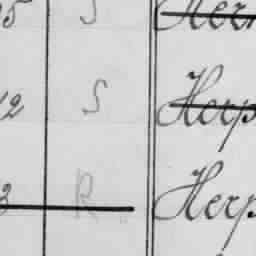 5 S Her
12 S Herp
3 R Herp